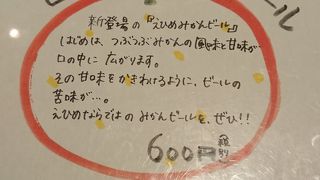 ビール
新登場の『えひめみかんビール』
はじめは、つぶつぶみかんの風味と甘味が
口の中に広がります。
その甘味をかきわけるように、ビールの
苦味が…。
えひめならではのみかんビールを、ぜひ!!
600円(税別)